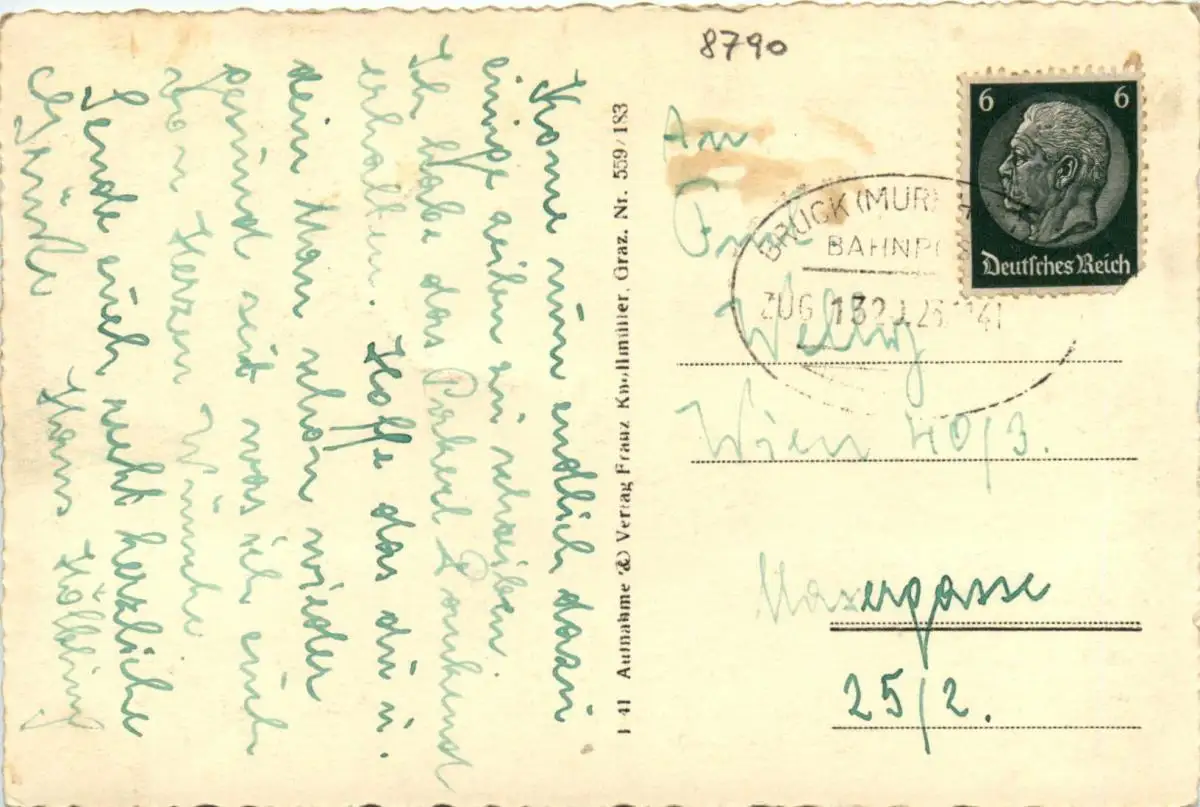 8790
Kome nun endlich dazu
einige zeilen zu schreiben.
Ich habe das Packerl dankend
erhalten. Hoffe das du u.
dein Man schon wieder
gesund seit was ich euch
von Herzen Wünsche
Sende euch recht herzliche
Grüße Hans
L 41 Aufnahme (&) Verlag Franz Knollmüller, Graz. Nr. 559/183
6 6
Deutsches Reich
BRUCK (MUR)
BAHNPO
ZUG 132
An
Wien 40/3.
Mazergasse
25/2.